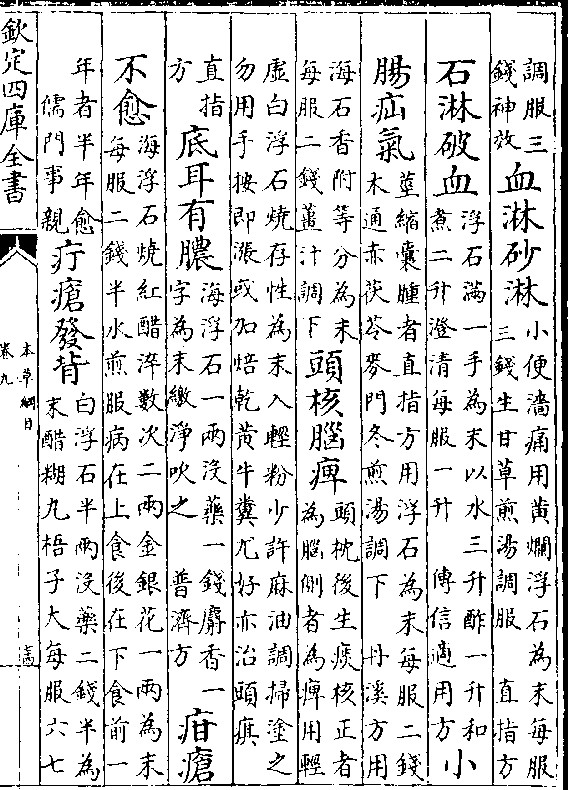 調服三錢神效血淋砂淋小便濇痛用黄爛浮石為末每服三錢生甘草煎湯調服 直指方
石淋破血浮石滿一手為末以水三升酢一升和煮二升澄清每服一升 傳信適用方小
腸疝氣莖縮囊腫者直指方用浮石為末每服二錢木通赤茯苓麥門冬煎湯調下 丹溪方用
海石香附等分為末每服二錢薑汁調下頭核腦痺頭枕後生痰核正者為腦側者為痺用輕
虛白浮石燒存性為末入輕粉少許麻油調掃塗之勿用手按即漲或加焙乾黄牛糞尤好亦治頭㾦
直指方底耳有膿海浮石一兩沒藥一錢麝香一字為末繳淨吹之 普濟方疳瘡
不愈海浮石燒紅醋淬數次二兩金銀花一兩為末每服二錢半水煎服病在上食後在下食前一
年者半年愈儒門事親疔瘡發背白浮石半兩沒藥二錢半為末醋糊丸梧子大每服六七
欽定四庫全書
本草綱目
卷九